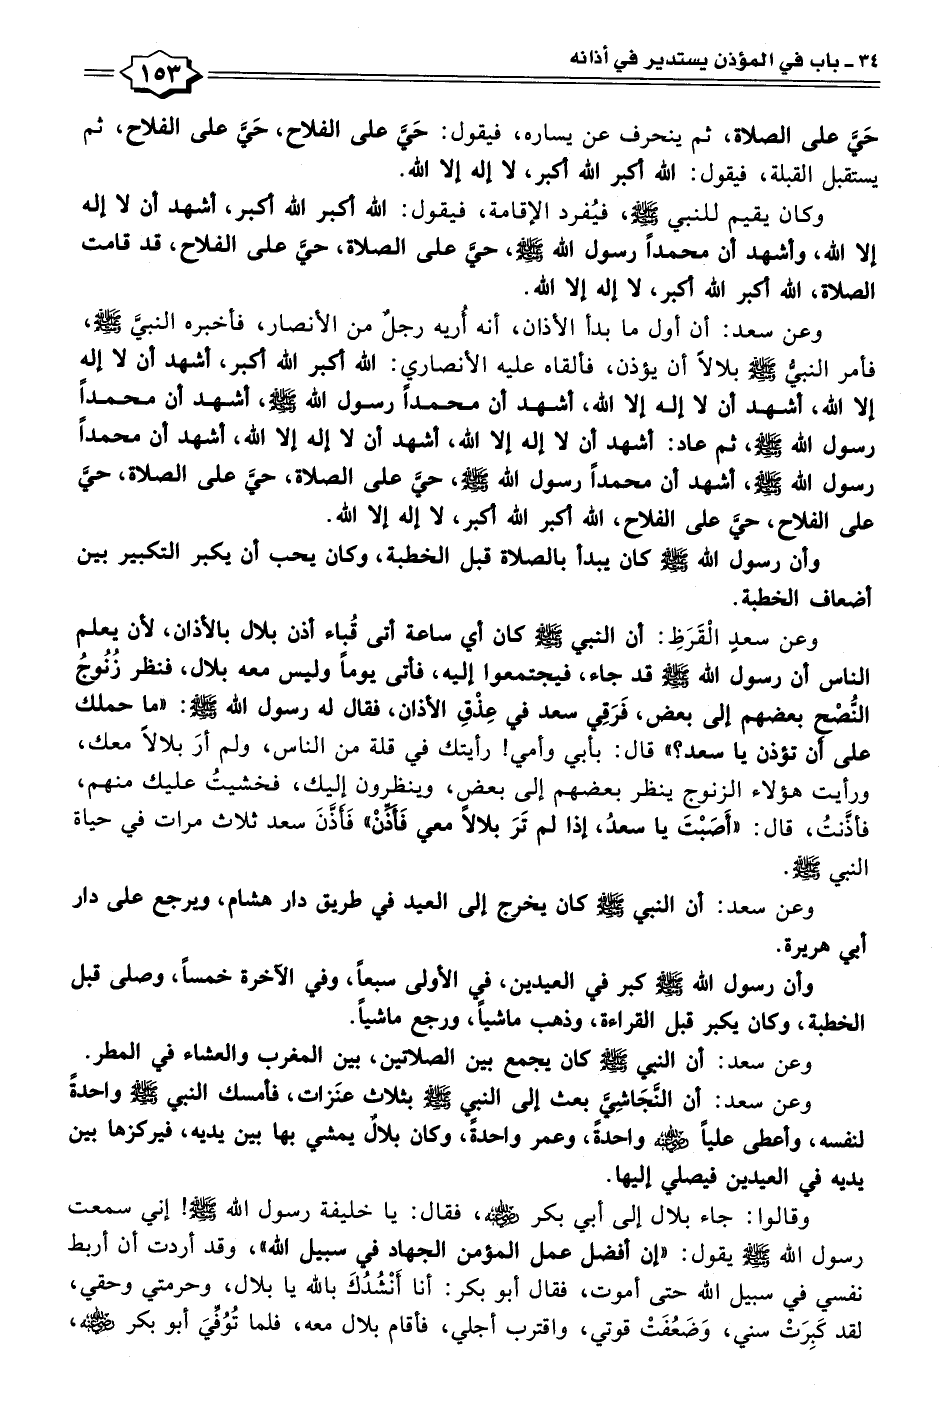 ٣٤ - باب في المؤذن يستدير في أذانه
١٥٣
حَيَّ على الصلاة، ثم ينحرف عن يساره، فيقول: حَيَّ على الفلاح، حَيَّ على الفلاح، ثم
يستقبل القبلة، فيقول: الله أكبر الله أكبر، لا إله إلا الله.
وكان يقيم للنبي ﷺ، فيُفرد الإقامة، فيقول: الله أكبر الله أكبر، أشهد أن لا إله
إلا الله، وأشهد أن محمداً رسول الله ﷺ، حيَّ على الصلاة، حيَّ على الفلاح، قد قامت
الصلاة، الله أكبر الله أكبر، لا إله إلا الله.
وعن سعد: أن أول ما بدأ الأذان، أنه أُريه رجلٌ من الأنصار، فأخبره النبيَّ ﷺ،
فأمر النبيُّ ﷺ بلالاً أن يؤذن، فألقاه عليه الأنصاري: الله أكبر الله أكبر، أشهد أن لا إله
إلا الله، أشهد أن لا إله إلا الله، أشهد أن محمداً رسول الله ﷺ، أشهد أن محمداً
رسول الله ﷺ، ثم عاد: أشهد أن لا إله إلا الله، أشهد أن لا إله إلا الله، أشهد أن محمداً
رسول الله ﷺ، أشهد أن محمداً رسول الله ﷺ، حيَّ على الصلاة، حيَّ على الصلاة، حيَّ
على الفلاح، حيَّ على الفلاح، الله أكبر الله أكبر، لا إله إلا الله.
وأن رسول الله ﷺ كان يبدأ بالصلاة قبل الخطبة، وكان يحب أن يكبر التكبير بين
أضعاف الخطبة.
وعن سعدٍ الْقَرَظِ: أن النبي ﷺ كان أي ساعة أتى قُباء أذن بلال بالأذان، لأن يعلم
الناس أن رسول الله ﷺ قد جاء، فيجتمعوا إليه، فأتى يوماً وليس معه بلال، فنظر زُنُوجُ
النُّضْحِ بعضهم إلى بعض، فَرَقِي سعد في عِذْقِ الأذان، فقال له رسول الله ﷺ: «ما حملك
على أن تؤذن يا سعد؟» قال: بأبي وأمي! رأيتك في قلة من الناس، ولم أرَ بلالاً معك،
ورأيت هؤلاء الزنوج ينظر بعضهم إلى بعض، وينظرون إليك، فخشيتُ عليك منهم،
فأذَّنتُ، قال: «أَصَبْتَ يا سعدُ، إذا لم تَرَ بلالاً معي فَأَذِّنْ» فَأَذَّنَ سعد ثلاث مرات في حياة
النبي ﷺ.
وعن سعد: أن النبي ﷺ كان يخرج إلى العيد في طريق دار هشام، ويرجع على دار
أبي هريرة.
وأن رسول الله ﷺ كبر في العيدين، في الأولى سبعاً، وفي الآخرة خمساً، وصلى قبل
الخطبة، وكان يكبر قبل القراءة، وذهب ماشياً، ورجع ماشياً.
وعن سعد: أن النبي ﷺ كان يجمع بين الصلاتين، بين المغرب والعشاء في المطر.
وعن سعد: أن النَّجَاشِيَّ بعث إلى النبي ﷺ بثلاث عنَزات، فأمسك النبي ﷺ واحدةً
لنفسه، وأعطى علياً رضي الله عنه واحدةً، وعمر واحدةً، وكان بلالٌ يمشي بها بين يديه، فيركزها بين
يديه في العيدين فيصلي إليها.
وقالوا: جاء بلال إلى أبي بكر رضي الله عنه، فقال: يا خليفة رسول الله ﷺ! إني سمعت
رسول الله ﷺ يقول: «إن أفضل عمل المؤمن الجهاد في سبيل الله»، وقد أردت أن أربط
نفسي في سبيل الله حتى أموت، فقال أبو بكر: أنا أَنْشُدُكَ بالله يا بلال، وحرمتي وحقي،
لقد كَبِرَتْ سني، وَضَعُفَتْ قوتي، واقترب أجلي، فأقام بلال معه، فلما تُوُفِّيَ أبو بكر رضي الله عنه،